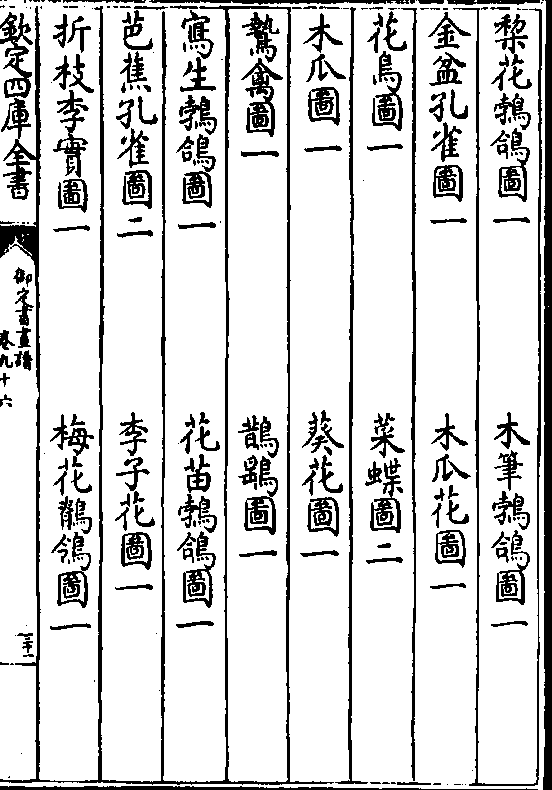 棃花鵓鴿圖一
木筆鵓鴿圖一
金盆孔雀圖一
木瓜花圖一
花鳥圖一
菜蝶圖二
木瓜圖一
葵花圖一
鷙禽圖一
鵲圖一
寫生鵓鴿圖一
花苗鵓鴿圖一
芭蕉孔雀圖二
李子花圖一
折枝李實圖一
梅花鶺鴒圖一
欽定四庫全書
御定書畫譜
卷九十六